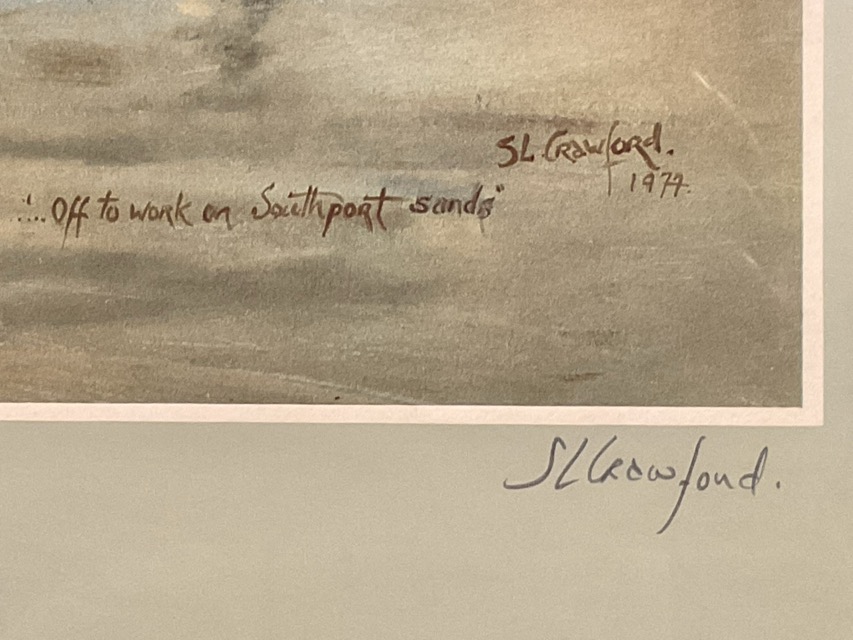 S L Crawford.
1974.
"... Off to work on Southport sands"
S L Crawford.